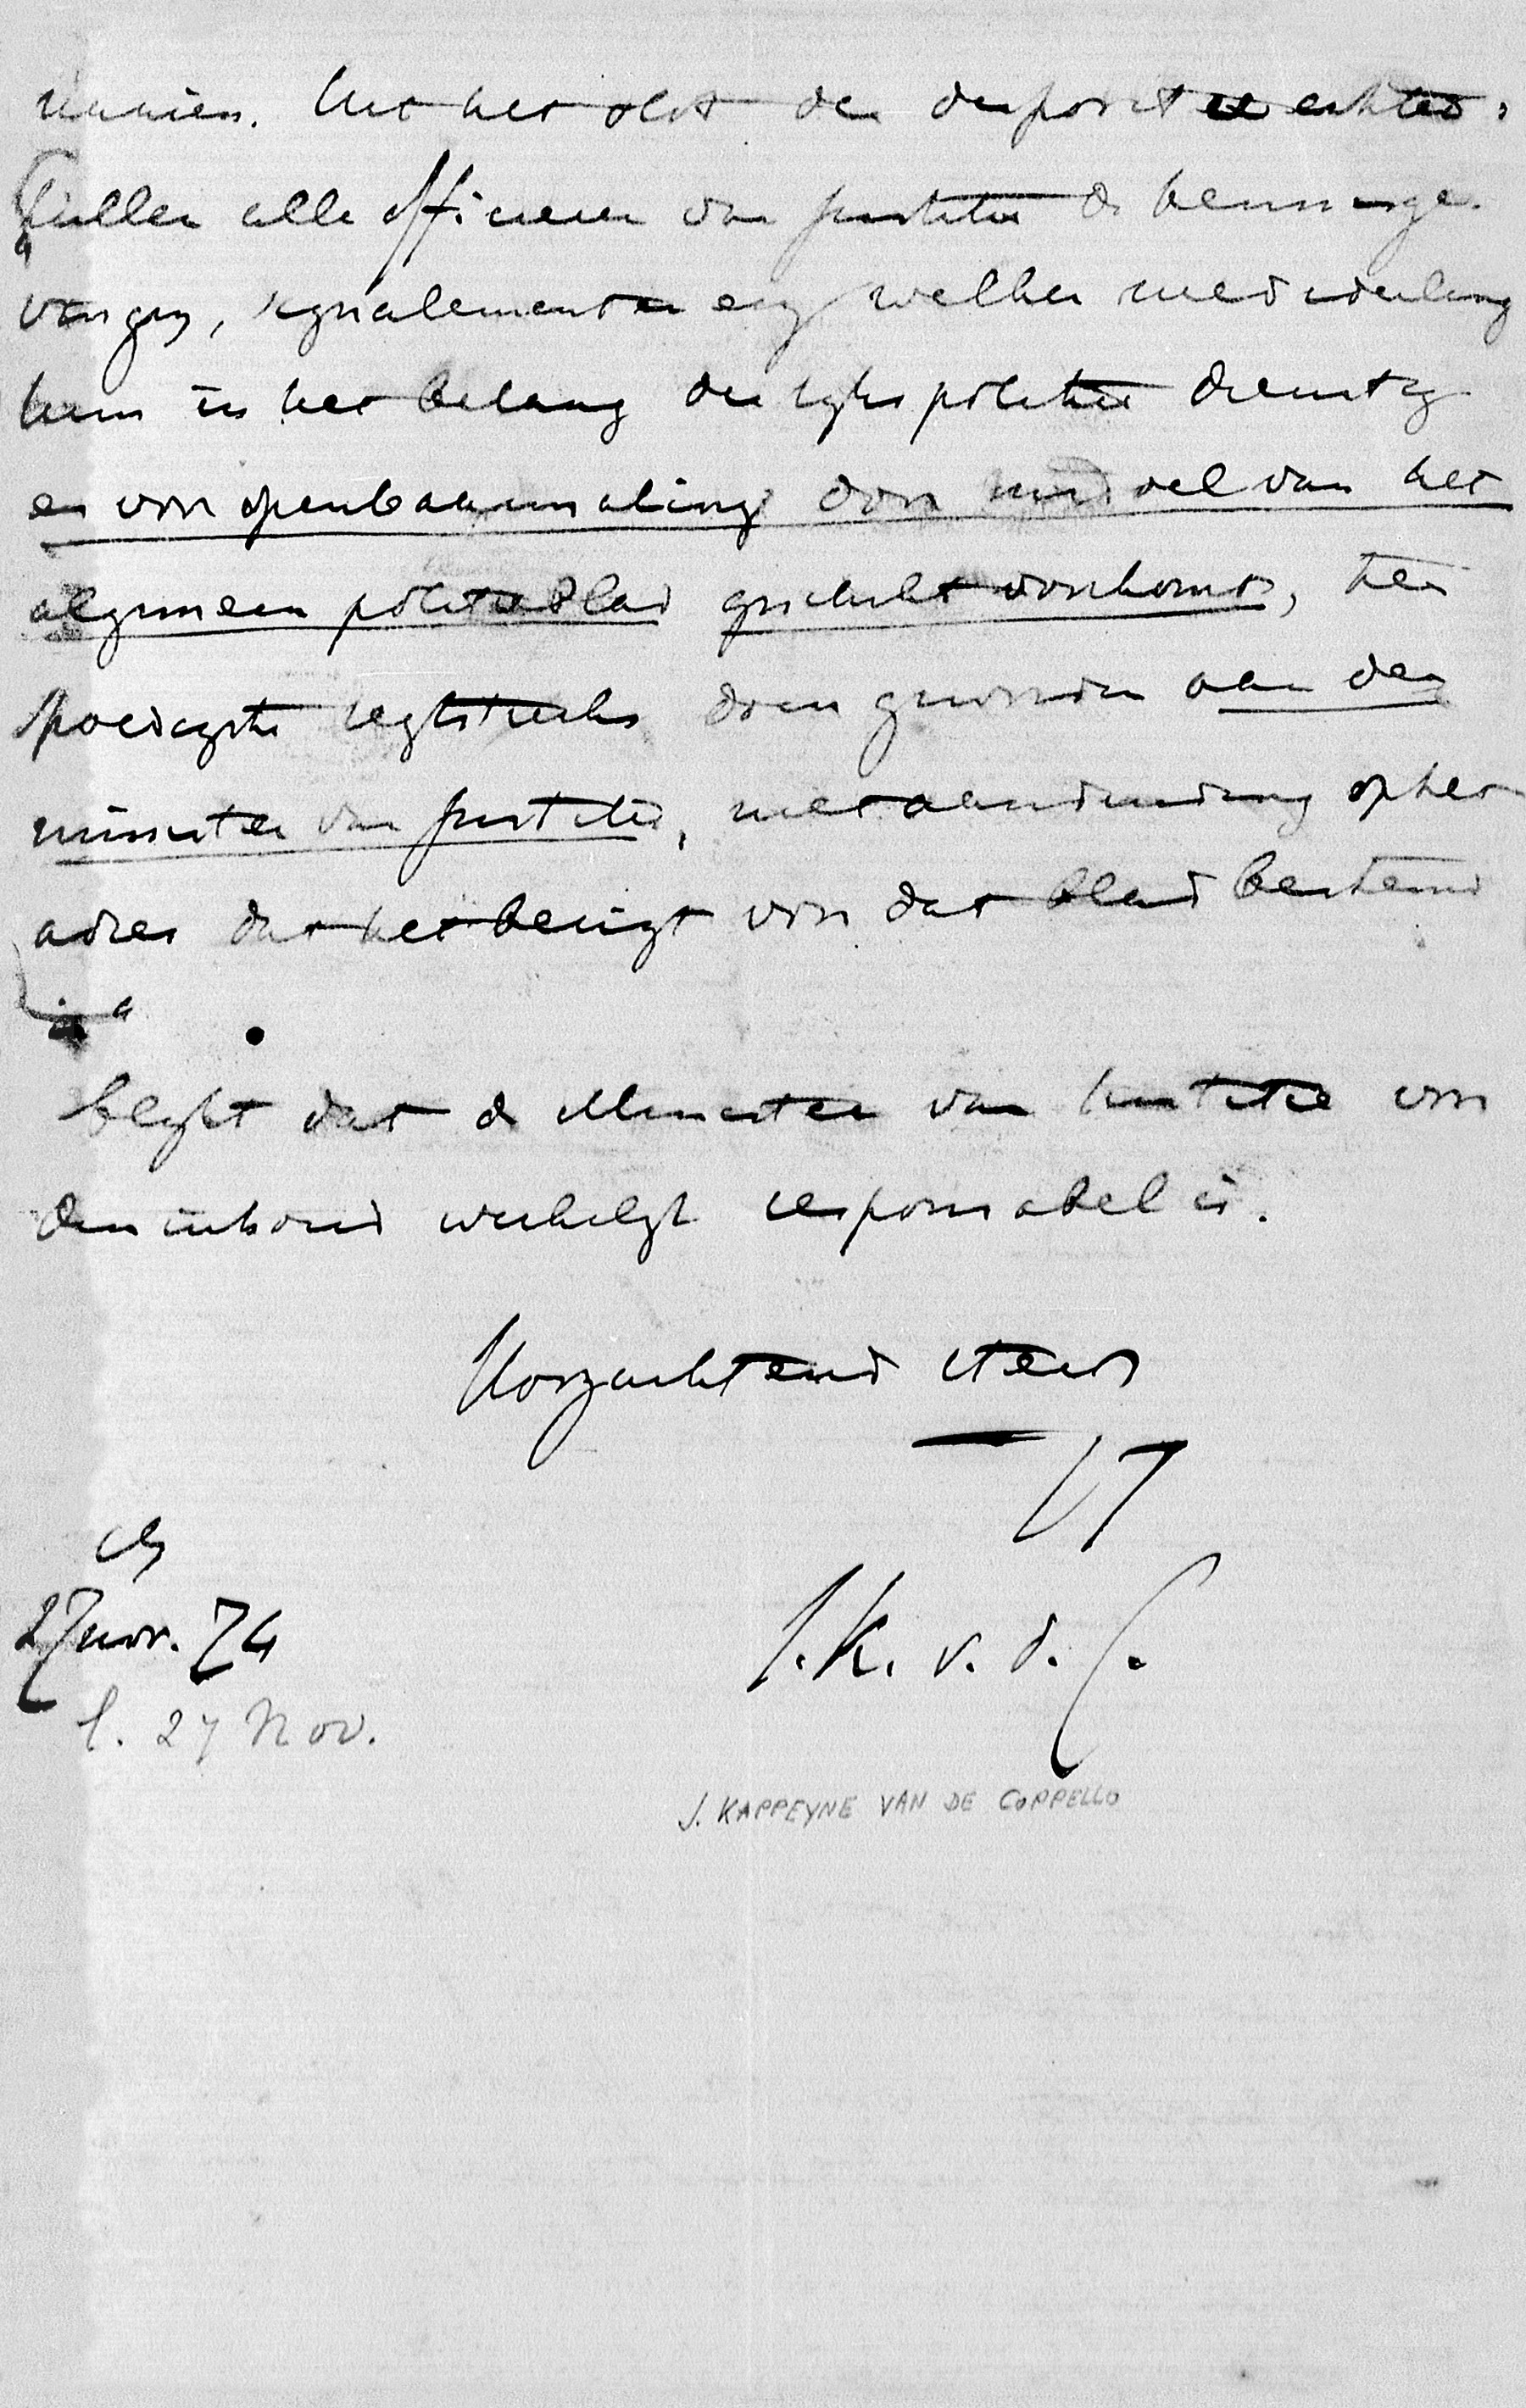 Uit het slot der dispositie echter:
zullen alle officieren van justitie de kennisge-
vingen, signalementen enz. welker mededeeling
hun in het belang der rijkspolitie dienstig
en voor openbaarmaking door middel van het
algemeen politieblad geschikt voorkomt, ten
spoedigste regtstreeks doen geworden aan den
minister van justitie, met aanduiding op het
adres dat het berigt voor dat blad bestemd
is"
blijkt dat de Minister van Justitie voor
den inhoud werkelijk responsabel is.
Hoogachtend steeds
27 nov. 74
J. K. v. d. C.
27 Nov.
J. KAPPEYNE VAN DE COPPELLO